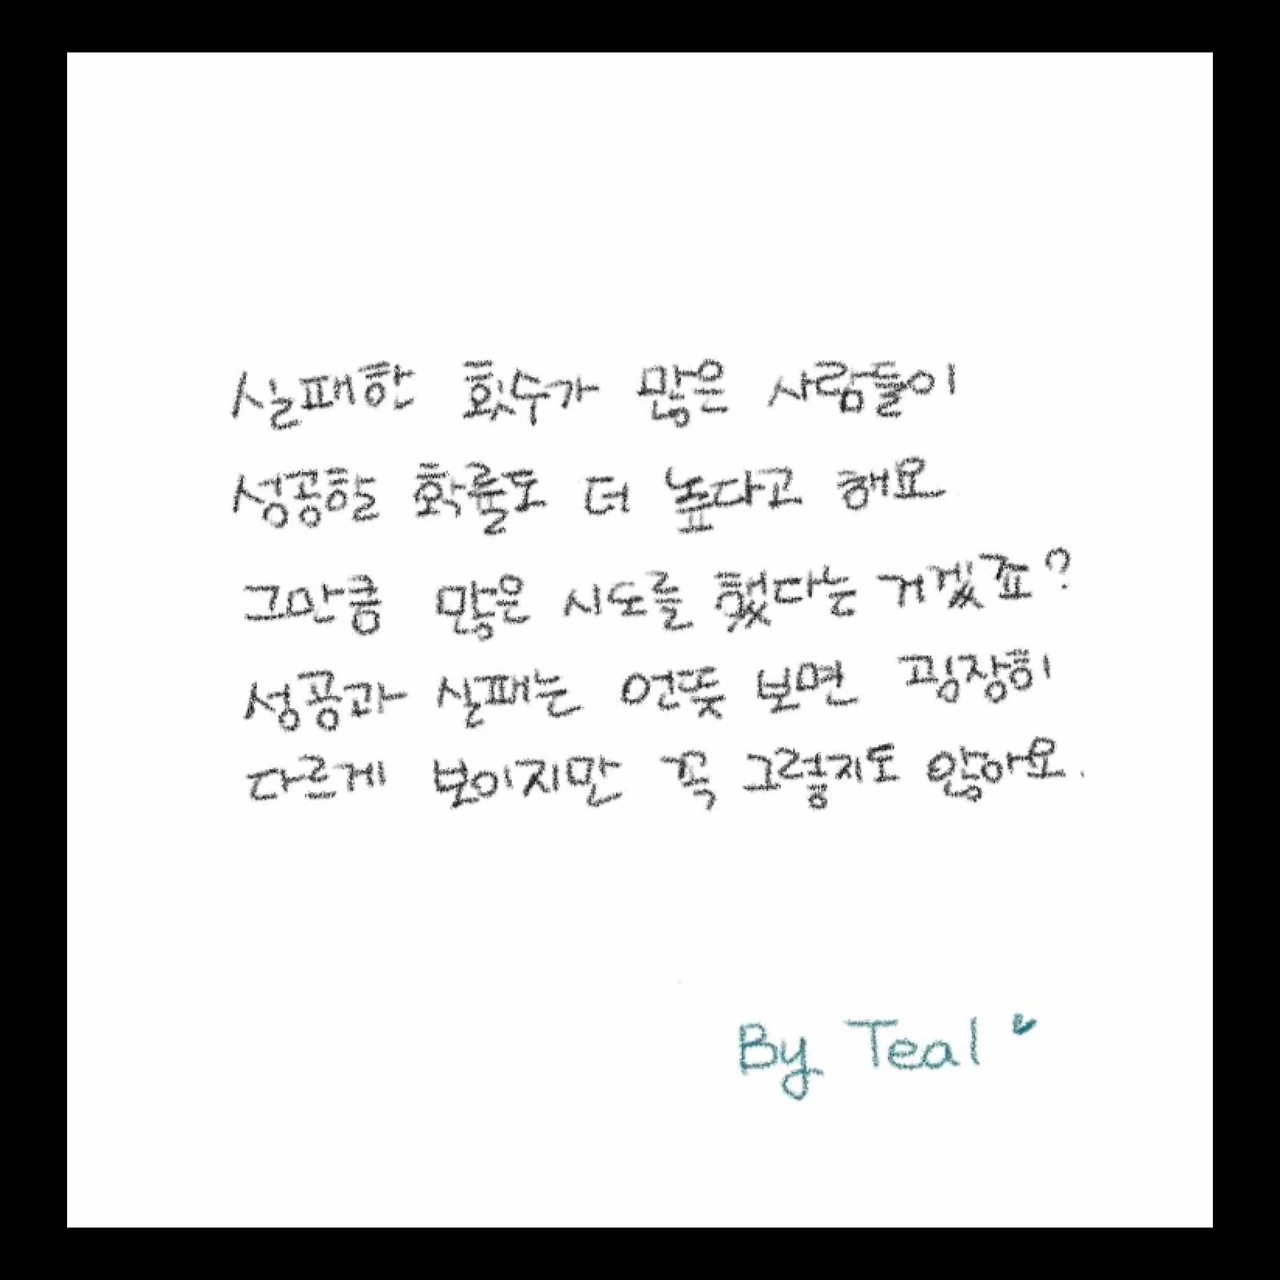 실패한 횟수가 많은 사람들이
성공할 확률도 더 높다고 해요
그만큼 많은 시도를 했다는 거겠죠?
성공과 실패는 언뜻 보면 굉장히
다르게 보이지만 꼭 그렇지도 않아요.
By Teal